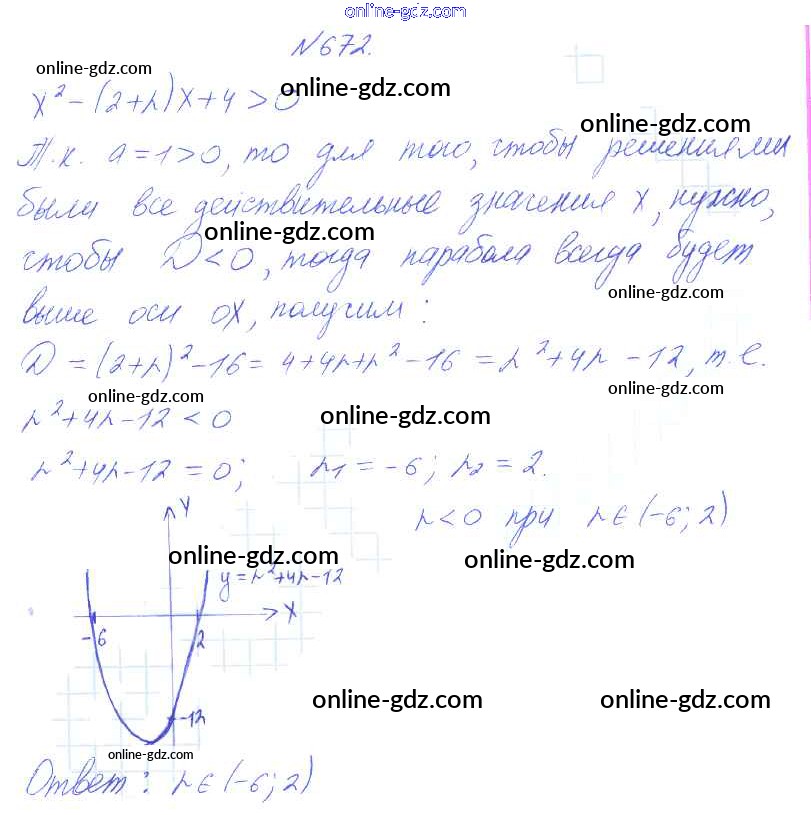 online-gdz.com
N672.
online-gdz.com
x² - (2+r)x+4 > 0
online-gdz.com
online-gdz.com
Т.к. a=1>0, то для того, чтобы решениями
были все действительные значения x, нужно,
online-gdz.com
чтобы D<0, тогда парабола всегда будет
выше оси OX, получим:
online-gdz.com
D = (2+r)² - 16 = 4+4r+r² - 16 = r²+4r - 12, т.е.
online-gdz.com
online-gdz.com
r²+4r-12 < 0
online-gdz.com
r²+4r-12 = 0; r₁ = -6; r₂ = 2.
r<0 при r∈(-6; 2)
Y
online-gdz.com
online-gdz.com
y=r²+4r-12
X
-6 2
online-gdz.com
online-gdz.com
-12
online-gdz.com
Ответ: r∈(-6; 2)